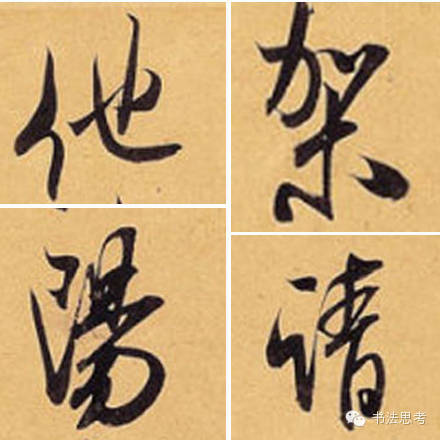 他 架
陽 請
书法思考